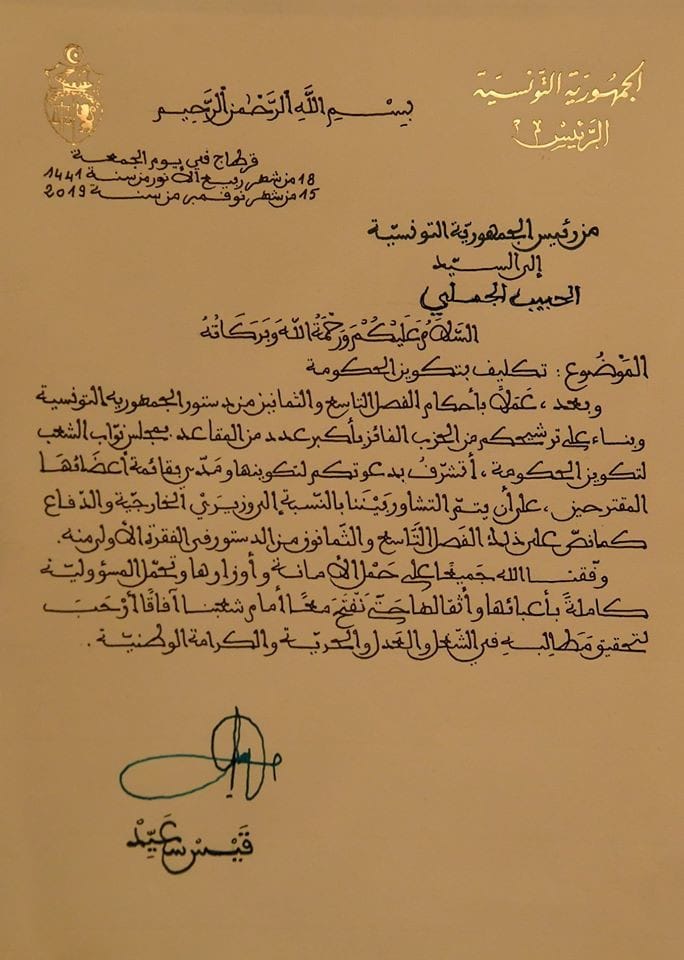 الجمهورية التونسية
الرئيس
بِسْمِ اللَّهِ الرَّحْمٰنِ الرَّحِيمِ
قرطاج في يوم الجمعة
18 من شهر ربيع الأنور من سنة 1441
15 من شهر نوفمبر من سنة 2019
من رئيس الجمهوريّة التونسيّة
إلى السيّد
الحبيب الجملي
السَّلَامُ عَلَيْكُمْ وَرَحْمَةُ اللَّهِ وَبَرَكَاتُهُ
المَوْضُوع : تكليف بتكوين الحكومة
وبعد ، عَمَلًا بأحكام الفصل التاسع والثمانين من دستور الجمهورية التونسية
وبناء على ترشيحكم من الحزب الفائز بأكبر عدد من المقاعد بمجلس نوّاب الشعب
لتكوين الحكومة ، أتشرّف بدعوتكم لتكوينها ومدّي بقائمة أعضائها
المقترحين ، على أن يتمّ التشاور بيننا بالنّسبة إلى وزيريْ الخارجيّة والدّفاع
كما نصّ على ذلك الفصل التّاسع والثّمانون من الدستور في الفقرة الأولى منه.
وفّقنا الله جميعًا على حَمْل الأمانة وأوزارها وتحمّل المسؤوليّة
كاملةً بأعبائها وأثقالها حَتّى نَفْتَحَ معًا أمام شعبنا آفاقًا أرْحَبَ
لتحقيق مَطَالبه في الشّغل والعَدل والحريّة والكرامة الوطنيّة .
قَيْس سَعَيّدْ